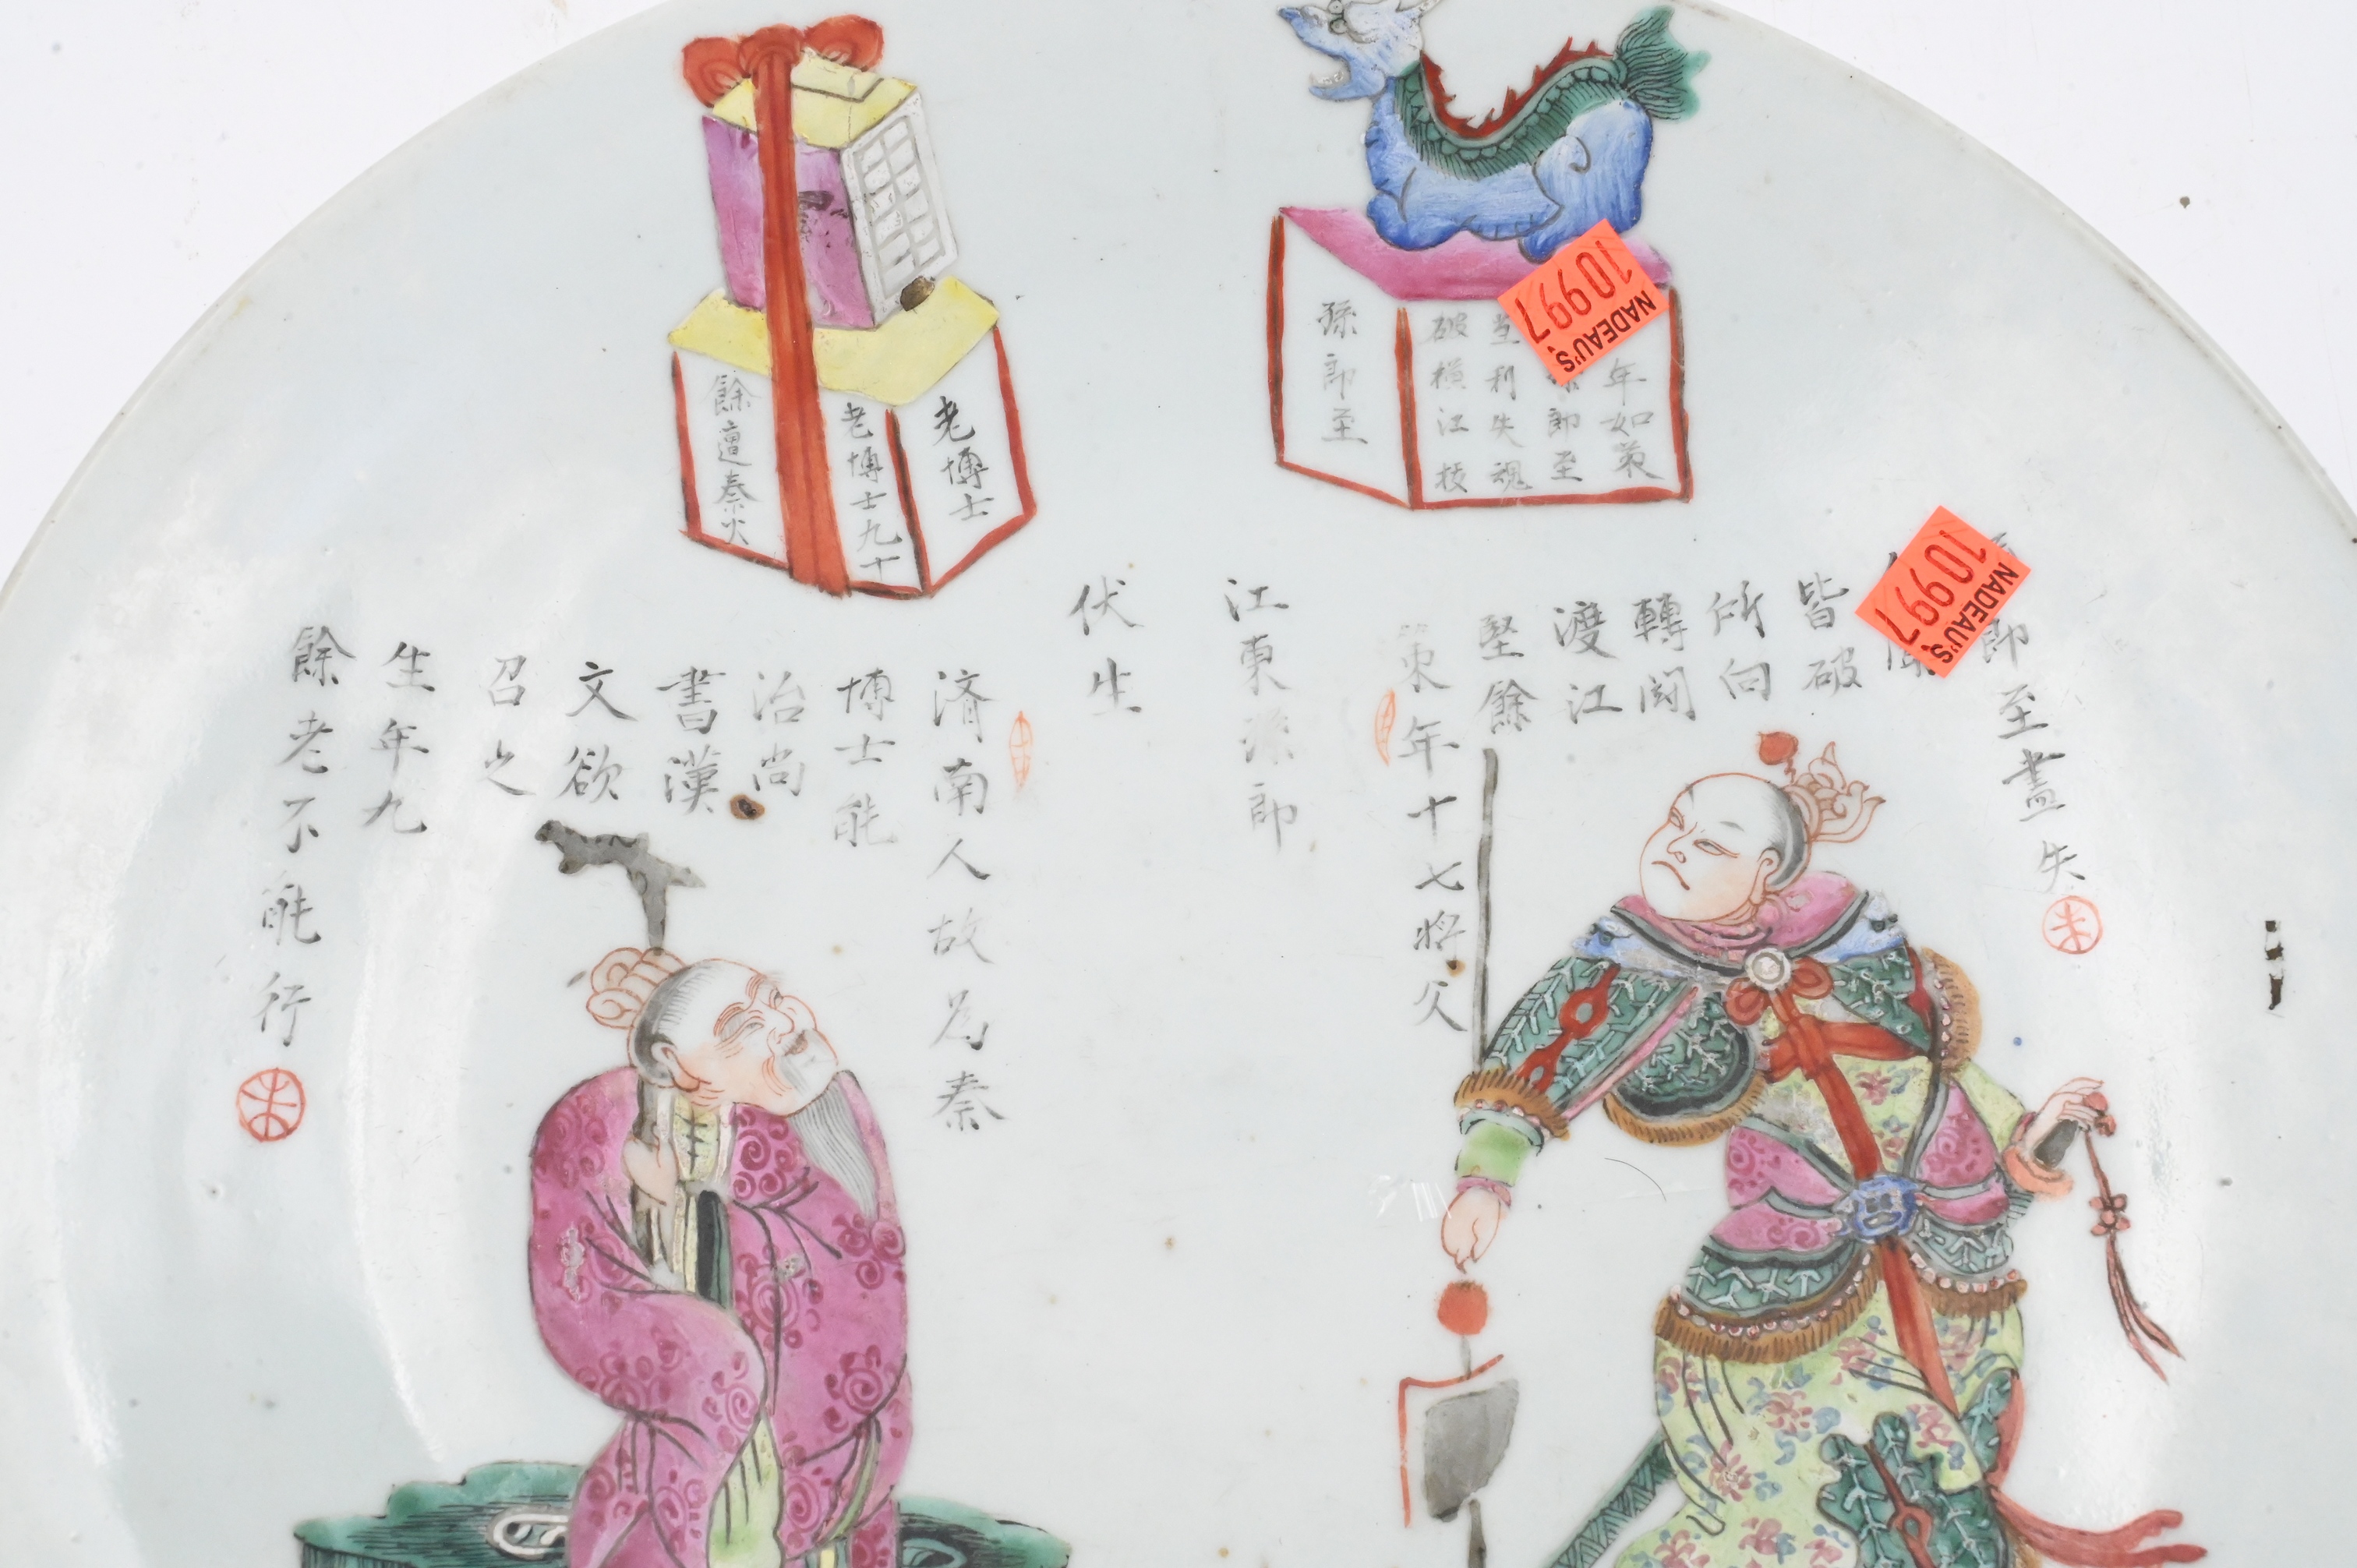 孫郎至
年如策
郎至
利失魂
破橫江技
NADEAU'S
10997
老博士
老博士九十
餘遭秦火
江東孫郎
策年十七將父
堅餘
渡江
轉鬪
所向
皆破
NADEAU'S
10997
郎至盡失
伏生
濟南人故為秦
博士能
治尚
書漢
文欲
召之
生年九
餘老不能行